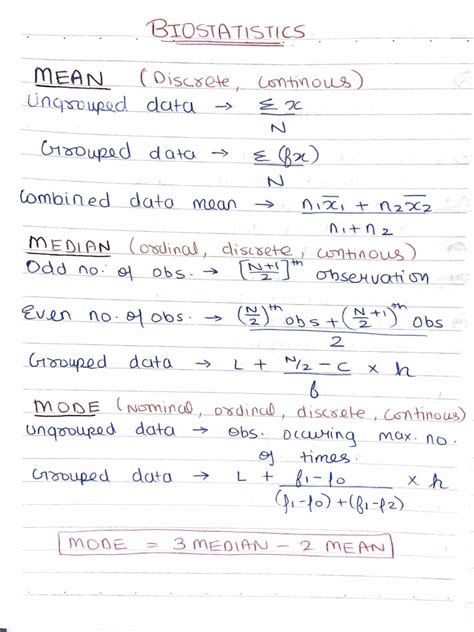 BIOSTATISTICS
MEAN (Discrete, continous)
Ungrouped data → Σx / N
Grouped data → Σ(fx) / N
Combined data mean → n₁x̄₁ + n₂x̄₂ / n₁+n₂
MEDIAN (ordinal, discrete, continous)
Odd no. of obs. → [N+1/2]ᵗʰ observation
Even no. of obs. → (N/2)ᵗʰ obs + (N/2+1)ᵗʰ obs / 2
Grouped data → L + N/2 - C / f × h
MODE (Nominal, ordinal, discrete, continous)
Ungrouped data → obs. occuring max. no.
of times.
Grouped data → L + f₁-f₀ / (f₁-f₀)+(f₁-f₂) × h
MODE = 3 MEDIAN - 2 MEAN